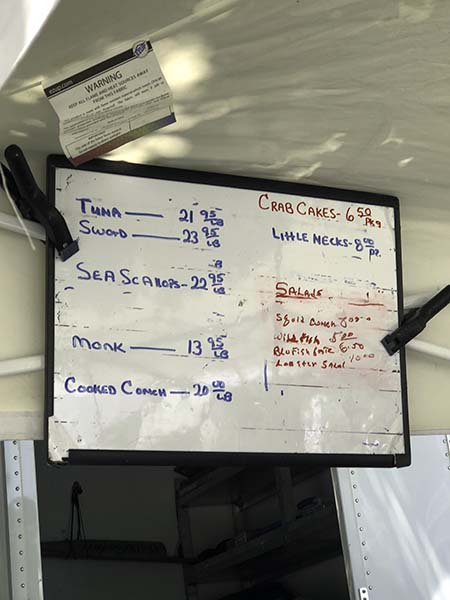 WARNING
KEEP ALL FLAME AND HEAT SOURCES AWAY
FROM THIS FABRIC
TUNA — 21 95/LB
SWORD — 23 95/LB
LB
SEA SCALLOPS - 22 95/LB
MONK — 13 95/LB
COOKED CONCH — 20 00/LB
CRAB CAKES - 6 50/PKg.
LITTLE NECKS - 8 00/DZ.
SALADS
Squid Conch
5.00
6.50
10.00
Lobster Salad